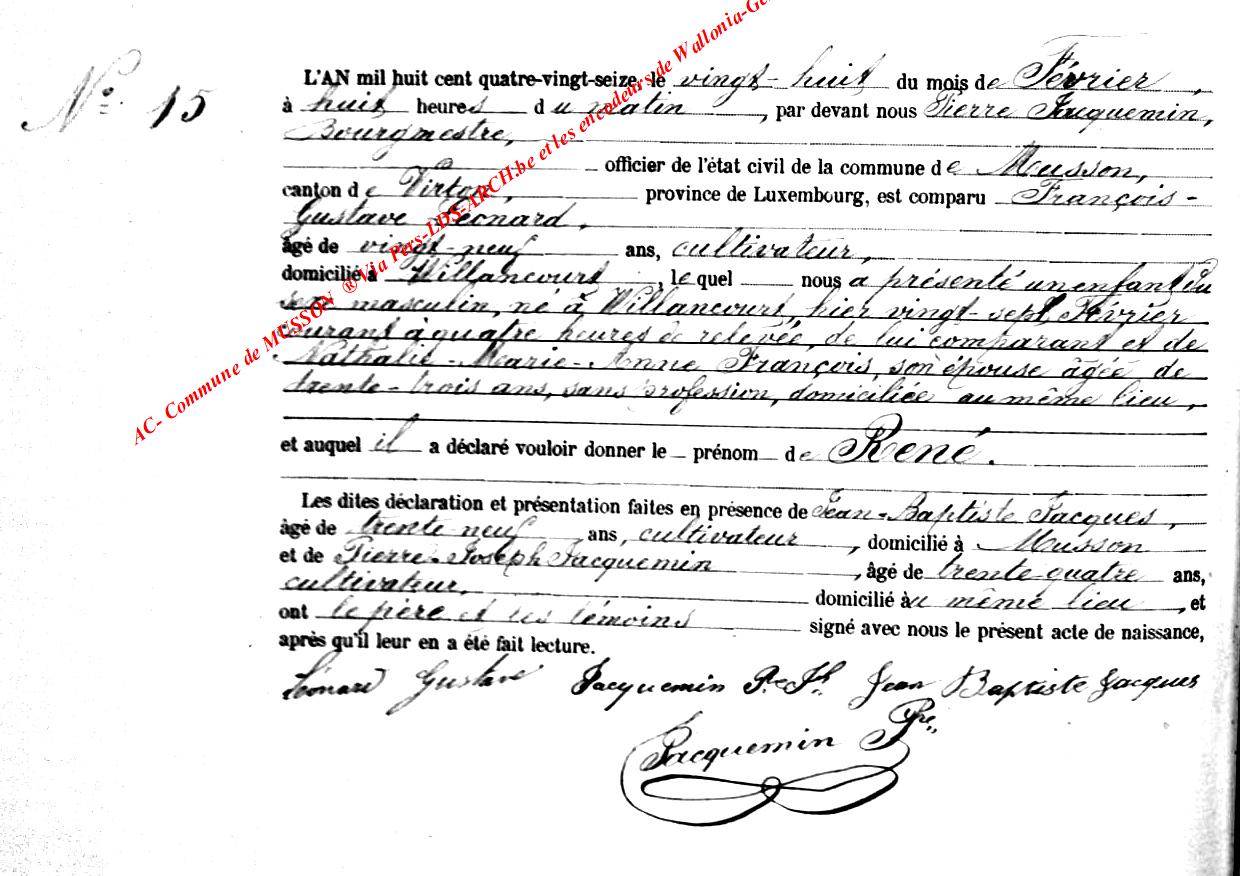 N° 15
L'AN mil huit cent quatre-vingt-seize, le vingt-huit du mois de Février,
à huit heures du matin, par devant nous Pierre Jacquemin,
Bourgmestre,
officier de l'état civil de la commune de Musson,
canton de Virton, province de Luxembourg, est comparu François-
Gustave Léonard,
âgé de vingt-neuf ans, cultivateur,
domicilié à Willancourt, lequel nous a présenté un enfant du
sexe masculin, né à Willancourt, hier vingt-sept Février
courant à quatre heures de relevée, de lui comparant et de
Nathalie-Marie-Anne François, son épouse âgée de
trente-trois ans, sans profession, domiciliée au même lieu,
et auquel il a déclaré vouloir donner le prénom de René.
Les dites déclaration et présentation faites en présence de Jean-Baptiste Jacques,
âgé de trente neuf ans, cultivateur, domicilié à Musson
et de Pierre-Joseph Jacquemin, âgé de trente quatre ans,
cultivateur, domicilié au même lieu, et
ont le père et les témoins signé avec nous le présent acte de naissance,
après qu'il leur en a été fait lecture.
Léonard Gustave Jacquemin Pre Jh. Jean Baptiste Jacques
Jacquemin Pre
AC- Commune de MUSSON ® Via Pers-LDS-ARCH.be et les encodeurs de Wallonia-Ge